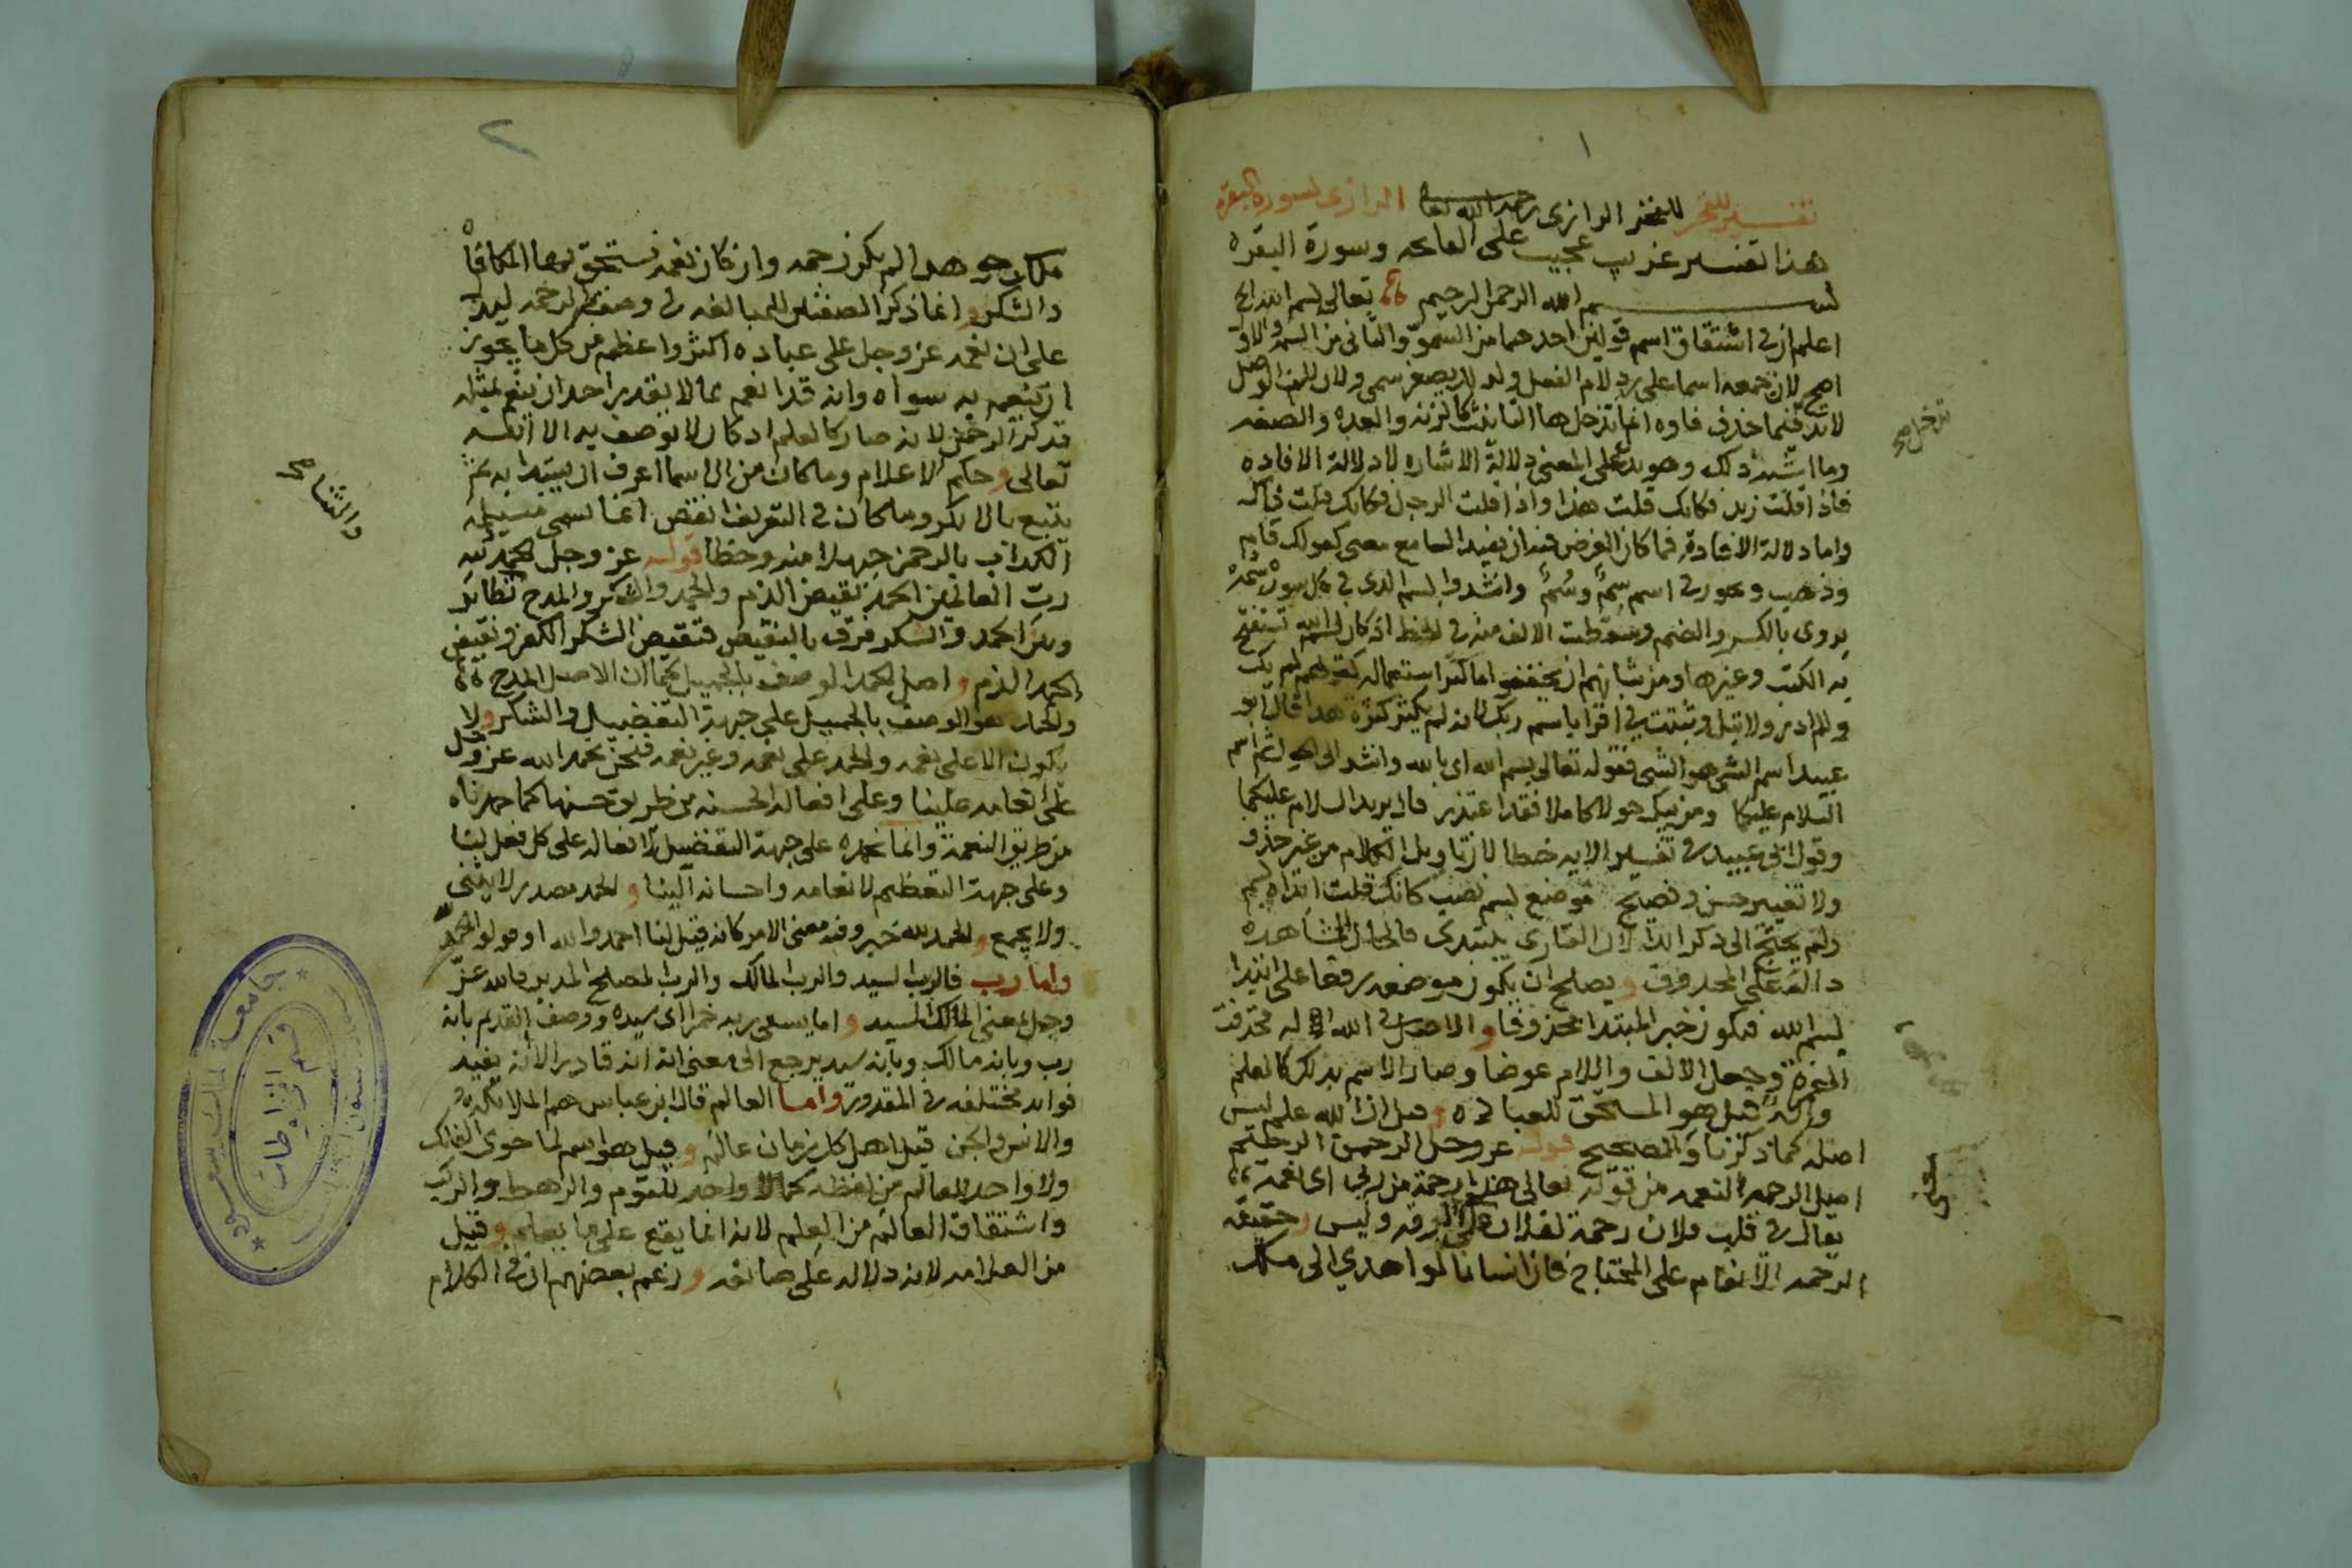 ١
تفسير الفخر للفخر الرازى رحمه الله تعالى الرازى لسورة البقره
هذا تفسير غريب عجيب على الفاتحه وسورة البقره
بسم الله الرحمن الرحيم تعالى بسم الله
اعلم ان فى اشتقاق اسم قولين احدهما من السمو والثانى من السمة والاول
اصح لان جمعه اسما على رد لام الفعل ولان تصغيره سمى ولان الف الوصل
انما تدخل ها التانيث كالزنه والعده والصفه
وما اشبه ذلك وهو يدل على المعنى دلالة الاشاره لا دلالة الافاده
فاذا قلت زيد فكانك قلت هذا واذا قلت الرجل فكانك قلت ذاك
واما دلالة الافادة فما كان الغرض فيه ان يفيد السامع معنى كقولك قام
وذهب ويجوز فى اسم سِمٌ وسُمٌ وانشدوا بسم الذى فى كل سورة سمه
يروى بالكسر والضم وسقطت الالف منه فى الخط اذ كان بسم الله تستفتح
به الكتب وغيرها ومن شانهم ان يخففوا ما كثر استعماله كقولهم لم يك
ولم ادر ولا تبل وثبتت فى اقرا باسم ربك لانه لم يكثر كثرة هذا قال ابو
عبيد اسم الشى هو الشى فقوله تعالى بسم الله اى بالله وانشد الى الحول ثم اسم
السلام عليكما ومن يبك حولا كاملا فقد اعتذر قال يريد السلام عليكما
وقول ابى عبيد فى تفسير الايه خطا لان تاويل الكلام من غير حذف
ولا تغيير حسن وفصيح موضع بسم نصب كانك قلت ابدا بسم
ولم يحتج الى ذكر ابدا لان القارى يبتدى فالحال المشاهده
دالة على المحذوف ويصلح ان يكون موضعه رفعا على ابتدا
بسم الله فيكون خبر المبتدا محذوفا والاصل فى الله اله فحذفت
الهمزة وجعل الالف واللام عوضا وصار الاسم بذلك كالعلم
واله قيل هو المستحق للعباده وقيل ان الله علم ليس
اصله كما ذكرنا والصحيح قوله عز وجل الرحمن الرحيم
اصل الرحمه النعمه من قوله تعالى هذا رحمة من ربى اى نعمه
يقال فى قلب فلان رحمة لفلان على الرقه وليس وحقيقه
الرحمه الانعام على المحتاج فان انسانا لو اهدي الى ملك
تدخل صح
معنى
٢
ملكا جوهرا لم يكن رحمه وان كان نعمه يستحق بها المكافاه
والشكر وانما ذكر الصفتين للمبالغه فى وصفه بالرحمه ليدل
على ان نعمه عز وجل على عباده اكثر واعظم من كل ما يجوز
ان ينعم به سواه وانه قد انعم بما لا يقدر احد ان ينعم بمثله
قدم ذكر الرحمن لانه صار كالعلم اذ كان لا يوصف به الا الله
تعالى وحكم الاعلام وما كان من الاسما اعرف ان يبتدا به ثم
يتبع بالانكر وما كان فى التعريف انقص انما يسمى مسيلمه
الكذاب بالرحمن جهلا منه وخطا قوله عز وجل الحمد لله
رب العالمين الحمد نقيض الذم والحمد والشكر والمدح نظائر
وبين الحمد والشكر فرق بالنقيض فنقيض الشكر الكفر ونقيض
الحمد الذم واصل الحمد الوصف بالجميل كما ان الاصل المدح
والحمد هو الوصف بالجميل على جهة التفضيل والشكر ولا
يكون الا على نعمه والحمد على نعمه وغير نعمه فنحن نحمد الله عز وجل
على انعامه علينا وعلى افعاله الحسنه من طريق حسنها كما حمدناه
من طريق النعمة وانما نحمده على جهة التفضيل لافعاله على كل فعل لنا
وعلى جهة التعظيم لانعامه واحسانه الينا والحمد مصدر لا يثنى
ولا يجمع والحمد لله خبر وفيه معنى الامر كانه قيل لنا احمدوا الله او قولوا الحمد
واما رب فالرب السيد والرب المالك والرب المصلح المدبر فالله عز
وجل معنى المالك السيد واما يسقى ربه خمرا اى سيده ووصف القديم بانه
رب وبانه مالك وبانه سيد يرجع الى معنى انه قادر الا انه يفيد
فوائد مختلفه فى المقدور واما العالم قال ابن عباس هم الملائكة
والانس والجن قيل اهل كل زمان عالم وقيل هو اسم لما حوى الفلك
ولا واحد للعالم من لفظه كما لا واحد للقوم والرهط والركب
واشتقاق العالم من العلم لانه انما يقع على ما يعلم وقيل
من العلامه لانه دلاله على صانعه وزعم بعضهم ان فى الكلام
والثنا صح
جامعة الملك سعود
قسم المخطوطات